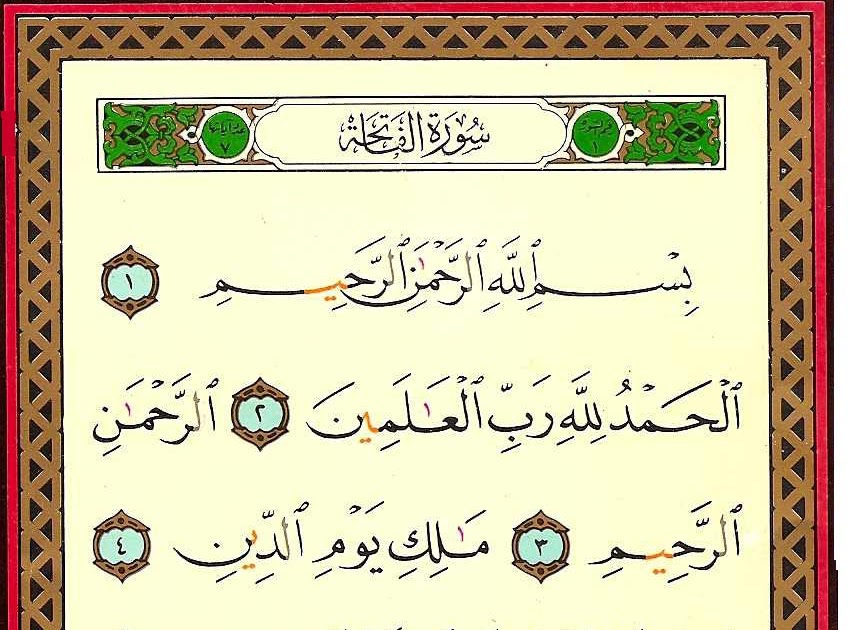 ١ سُورَةُ الفَاتِحَةِ عدد آياتها ٧
بِسْمِ ٱللَّهِ ٱلرَّحْمَٰنِ ٱلرَّحِيمِ ١
ٱلْحَمْدُ لِلَّهِ رَبِّ ٱلْعَٰلَمِينَ ٢ ٱلرَّحْمَٰنِ
ٱلرَّحِيمِ ٣ مَٰلِكِ يَوْمِ ٱلدِّينِ ٤